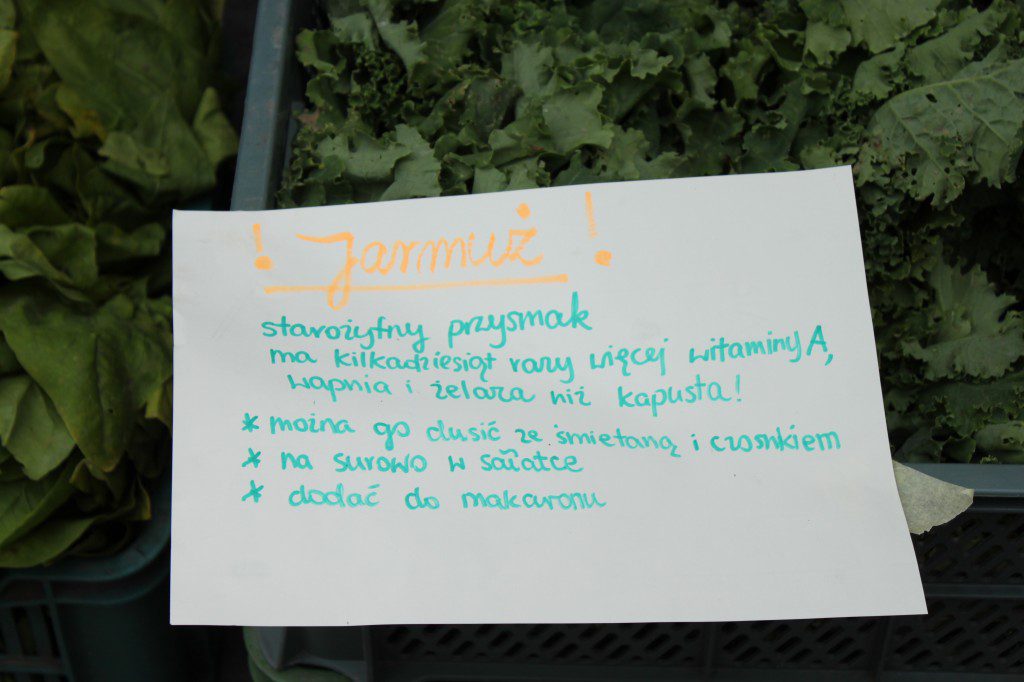 ! Jarmuż !
starożytny przysmak
ma kilkadziesiąt razy więcej witaminy A,
wapnia i żelaza niż kapusta!
* można go dusić ze śmietaną i czosnkiem
* na surowo w sałatce
* dodać do makaronu